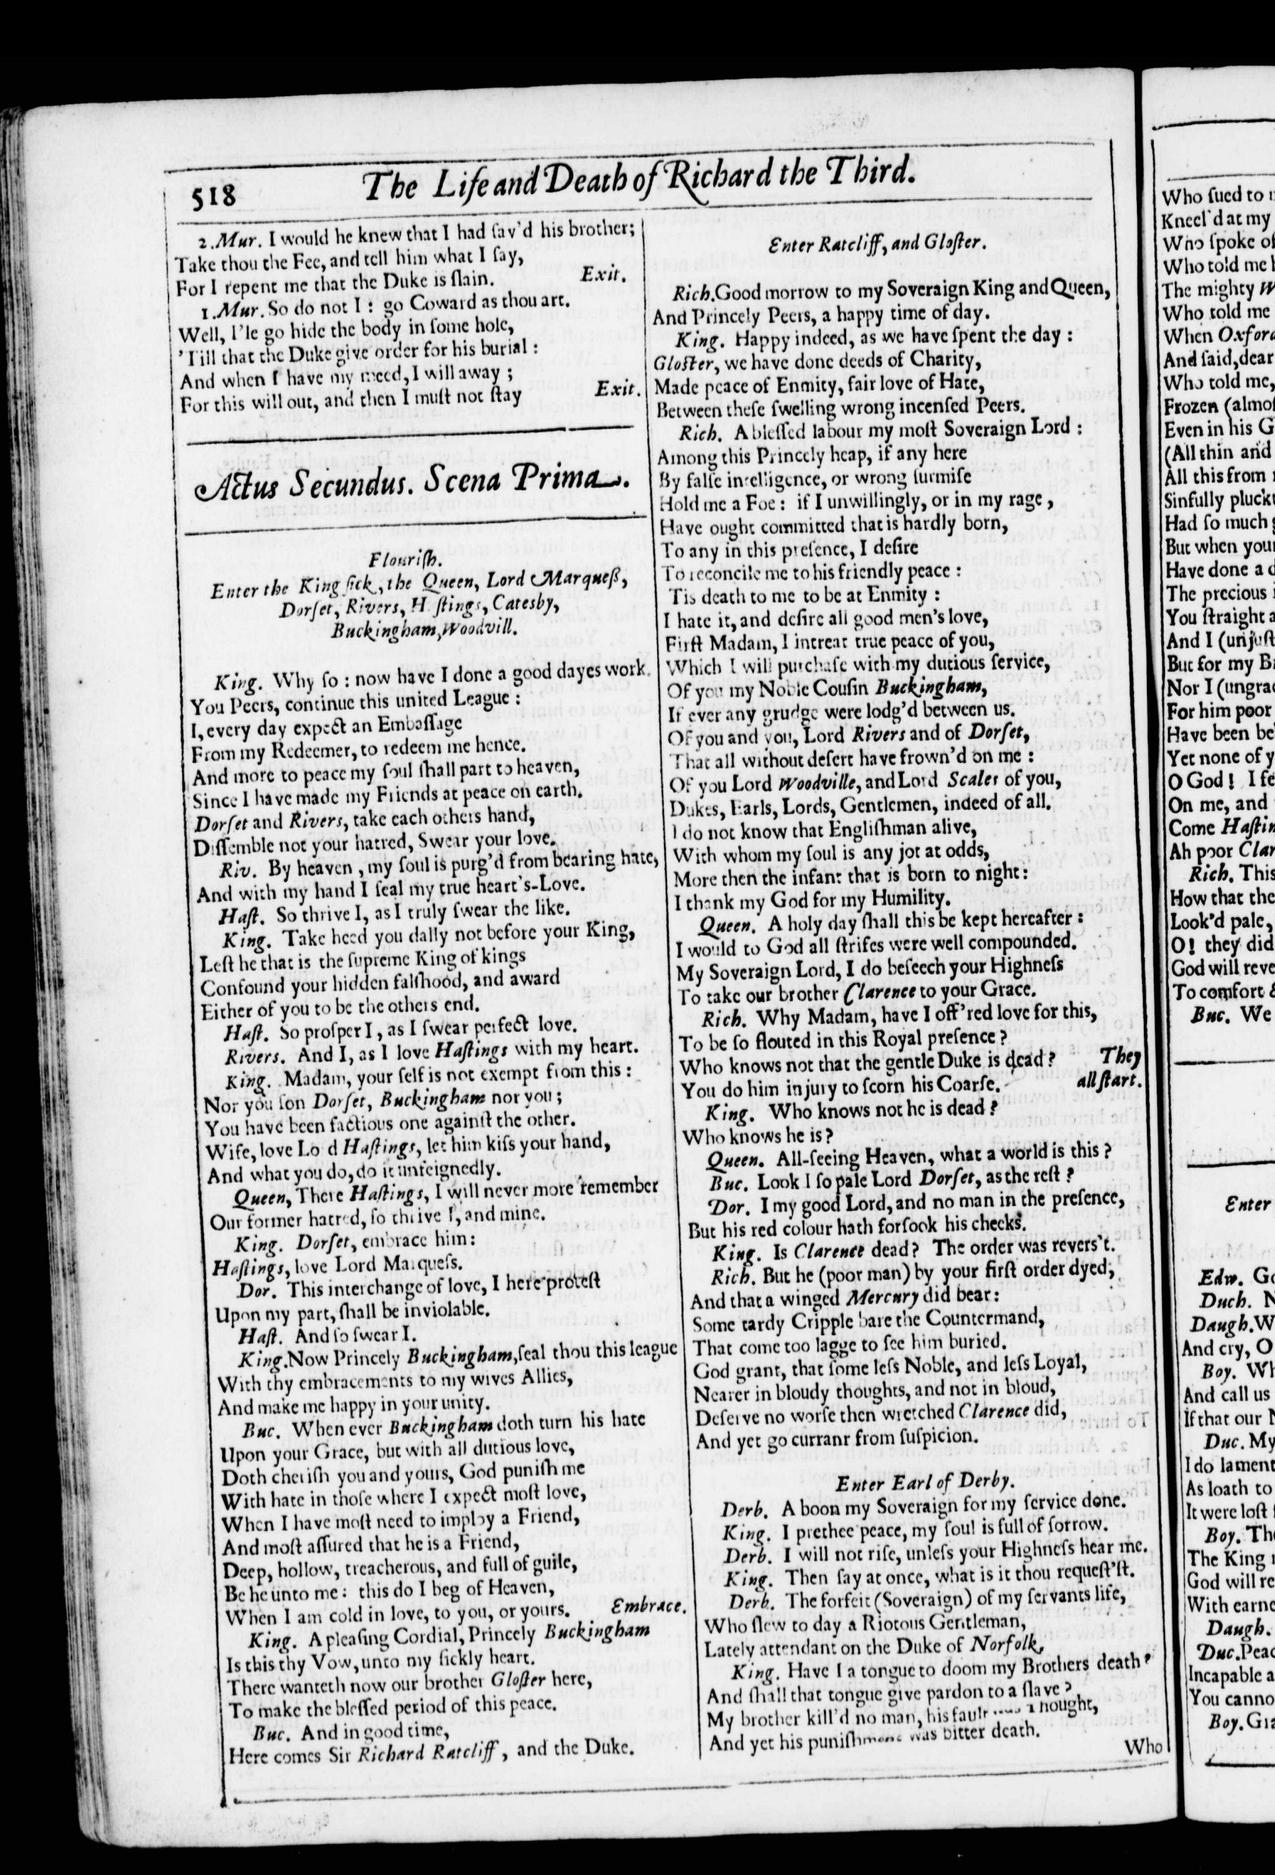 518 The Life and Death of Richard the Third.
2.Mur. I would he knew that I had ſav'd his brother;
Take thou the Fee, and tell him what I ſay,
For I repent me that the Duke is ſlain. Exit.
1.Mur. So do not I : go Coward as thou art.
Well, I'le go hide the body in ſome hole,
'Till that the Duke give order for his burial :
And when I have my meed, I will away ;
For this will out, and then I muſt not ſtay Exit.
Actus Secundus. Scena Prima.
Flouriſh.
Enter the King ſick, the Queen, Lord Marqueß,
Dorſet, Rivers, H ſtings, Catesby,
Buckingham, Woodvill.
King. Why ſo : now have I done a good dayes work.
You Peers, continue this united League :
I, every day expect an Embaſſage
From my Redeemer, to redeem me hence.
And more to peace my ſoul ſhall part to heaven,
Since I have made my Friends at peace on earth.
Dorſet and Rivers, take each others hand,
Diſſemble not your hatred, Swear your love.
Riv. By heaven, my ſoul is purg'd from bearing hate,
And with my hand I ſeal my true heart's-Love.
Haſt. So thrive I, as I truly ſwear the like.
King. Take heed you dally not before your King,
Leſt he that is the ſupreme King of kings
Confound your hidden falſhood, and award
Either of you to be the others end.
Haſt. So proſper I, as I ſwear perfect love.
Rivers. And I, as I love Haſtings with my heart.
King. Madam, your ſelf is not exempt from this :
Nor you ſon Dorſet, Buckingham nor you ;
You have been factious one againſt the other.
Wife, love Lo d Haſtings, let him kiſs your hand,
And what you do, do it unfeignedly.
Queen, There Haſtings, I will never more remember
Our former hatred, ſo thrive I, and mine.
King. Dorſet, embrace him :
Haſtings, love Lord Marqueſs.
Dor. This interchange of love, I here proteſt
Upon my part, ſhall be inviolable.
Haſt. And ſo ſwear I.
King.Now Princely Buckingham, ſeal thou this league
With thy embracements to my wives Allies,
And make me happy in your unity.
Buc. When ever Buckingham doth turn his hate
Upon your Grace, but with all dutious love,
Doth cheriſh you and yours, God puniſh me
With hate in thoſe where I expect moſt love,
When I have moſt need to imploy a Friend,
And moſt aſſured that he is a Friend,
Deep, hollow, treacherous, and full of guile,
Be he unto me : this do I beg of Heaven,
When I am cold in love, to you, or yours. Embrace.
King. A pleaſing Cordial, Princely Buckingham
Is this thy Vow, unto my ſickly heart.
There wanteth now our brother Gloſter here,
To make the bleſſed period of this peace.
Buc. And in good time,
Here comes Sir Richard Ratcliff, and the Duke.
Enter Ratcliff, and Gloſter.
Rich.Good morrow to my Soveraign King and Queen,
And Princely Peers, a happy time of day.
King. Happy indeed, as we have ſpent the day :
Gloſter, we have done deeds of Charity,
Made peace of Enmity, fair love of Hate,
Between theſe ſwelling wrong incenſed Peers.
Rich. A bleſſed labour my moſt Soveraign Lord :
Among this Princely heap, if any here
By falſe intelligence, or wrong ſurmiſe
Hold me a Foe : if I unwillingly, or in my rage,
Have ought committed that is hardly born,
To any in this preſence, I deſire
To reconcile me to his friendly peace :
Tis death to me to be at Enmity :
I hate it, and deſire all good men's love,
Firſt Madam, I intreat true peace of you,
Which I will purchaſe with my dutious ſervice,
Of you my Noble Couſin Buckingham,
If ever any grudge were lodg'd between us.
Of you and you, Lord Rivers and of Dorſet,
That all without deſert have frown'd on me :
Of you Lord Woodville, and Lord Scaler of you,
Dukes, Earls, Lords, Gentlemen, indeed of all.
I do not know that Engliſhman alive,
With whom my ſoul is any jot at odds,
More then the infant that is born to night :
I thank my God for my Humility.
Queen. A holy day ſhall this be kept hereafter :
I would to God all ſtrifes were well compounded.
My Soveraign Lord, I do beſeech your Highneſs
To take our brother Clarence to your Grace.
Rich. Why Madam, have I off'red love for this,
To be ſo flouted in this Royal preſence ?
Who knows not that the gentle Duke is dead ? They
You do him injury to ſcorn his Coarſe. all ſtart.
King. Who knows not he is dead ?
Who knows he is ?
Queen. All-ſeeing Heaven, what a world is this ?
Buc. Look I ſo pale Lord Dorſet, as the reſt ?
Dor. I my good Lord, and no man in the preſence,
But his red colour hath forſook his cheeks.
King. Is Clarence dead? The order was revers't.
Rich. But he (poor man) by your firſt order dyed,
And that a winged Mercury did bear :
Some tardy Cripple bare the Countermand,
That come too lagge to ſee him buried.
God grant, that ſome leſs Noble, and leſs Loyal,
Nearer in bloudy thoughts, and not in bloud,
Deſerve no worſe then wretched Clarence did,
And yet go curranr from ſuſpicion.
Enter Earl of Derby.
Derb. A boon my Soveraign for my ſervice done.
King. I prethee peace, my ſoul is full of ſorrow.
Derb. I will not riſe, unleſs your Highneſs hear me.
King. Then ſay at once, what is it thou requeſt'ſt.
Derb. The forfeit (Soveraign) of my ſervants life,
Who ſlew to day a Riotous Gentleman,
Lately attendant on the Duke of Norfolk.
King. Have I a tongue to doom my Brothers death ?
And ſhall that tongue give pardon to a ſlave ?
My brother kill'd no man, his fault hought,
And yet his puniſhment was bitter death.
Who
Who ſued to
Kneel'd at my
Who ſpoke of
Who told me
The mighty
Who told me
When Oxford
And ſaid, dear
Who told me,
Frozen (almoſ
Even in his G
(All thin and
All this from
Sinfully pluckt
Had ſo much
But when your
Have done a d
The precious
You ſtraight a
And I (unjuſt
But for my B
Nor I (ungra
For him poor
Have been be
Yet none of y
O God ! I fe
On me, and
Come Haſtin
Ah poor Clar
Rich. This
How that the
Look'd pale,
O! they did
God will reve
To comfort
Buc. We
Enter
Edw. Go
Duch. N
Daugh.W
And cry, O
Boy. Wh
And call us
If that our
Duc. My
I do lament
As loath to
It were loſt
Boy. The
The King
God will re
With earne
Daugh.
Duc.Peac
Incapable a
You canno
Boy.Gra